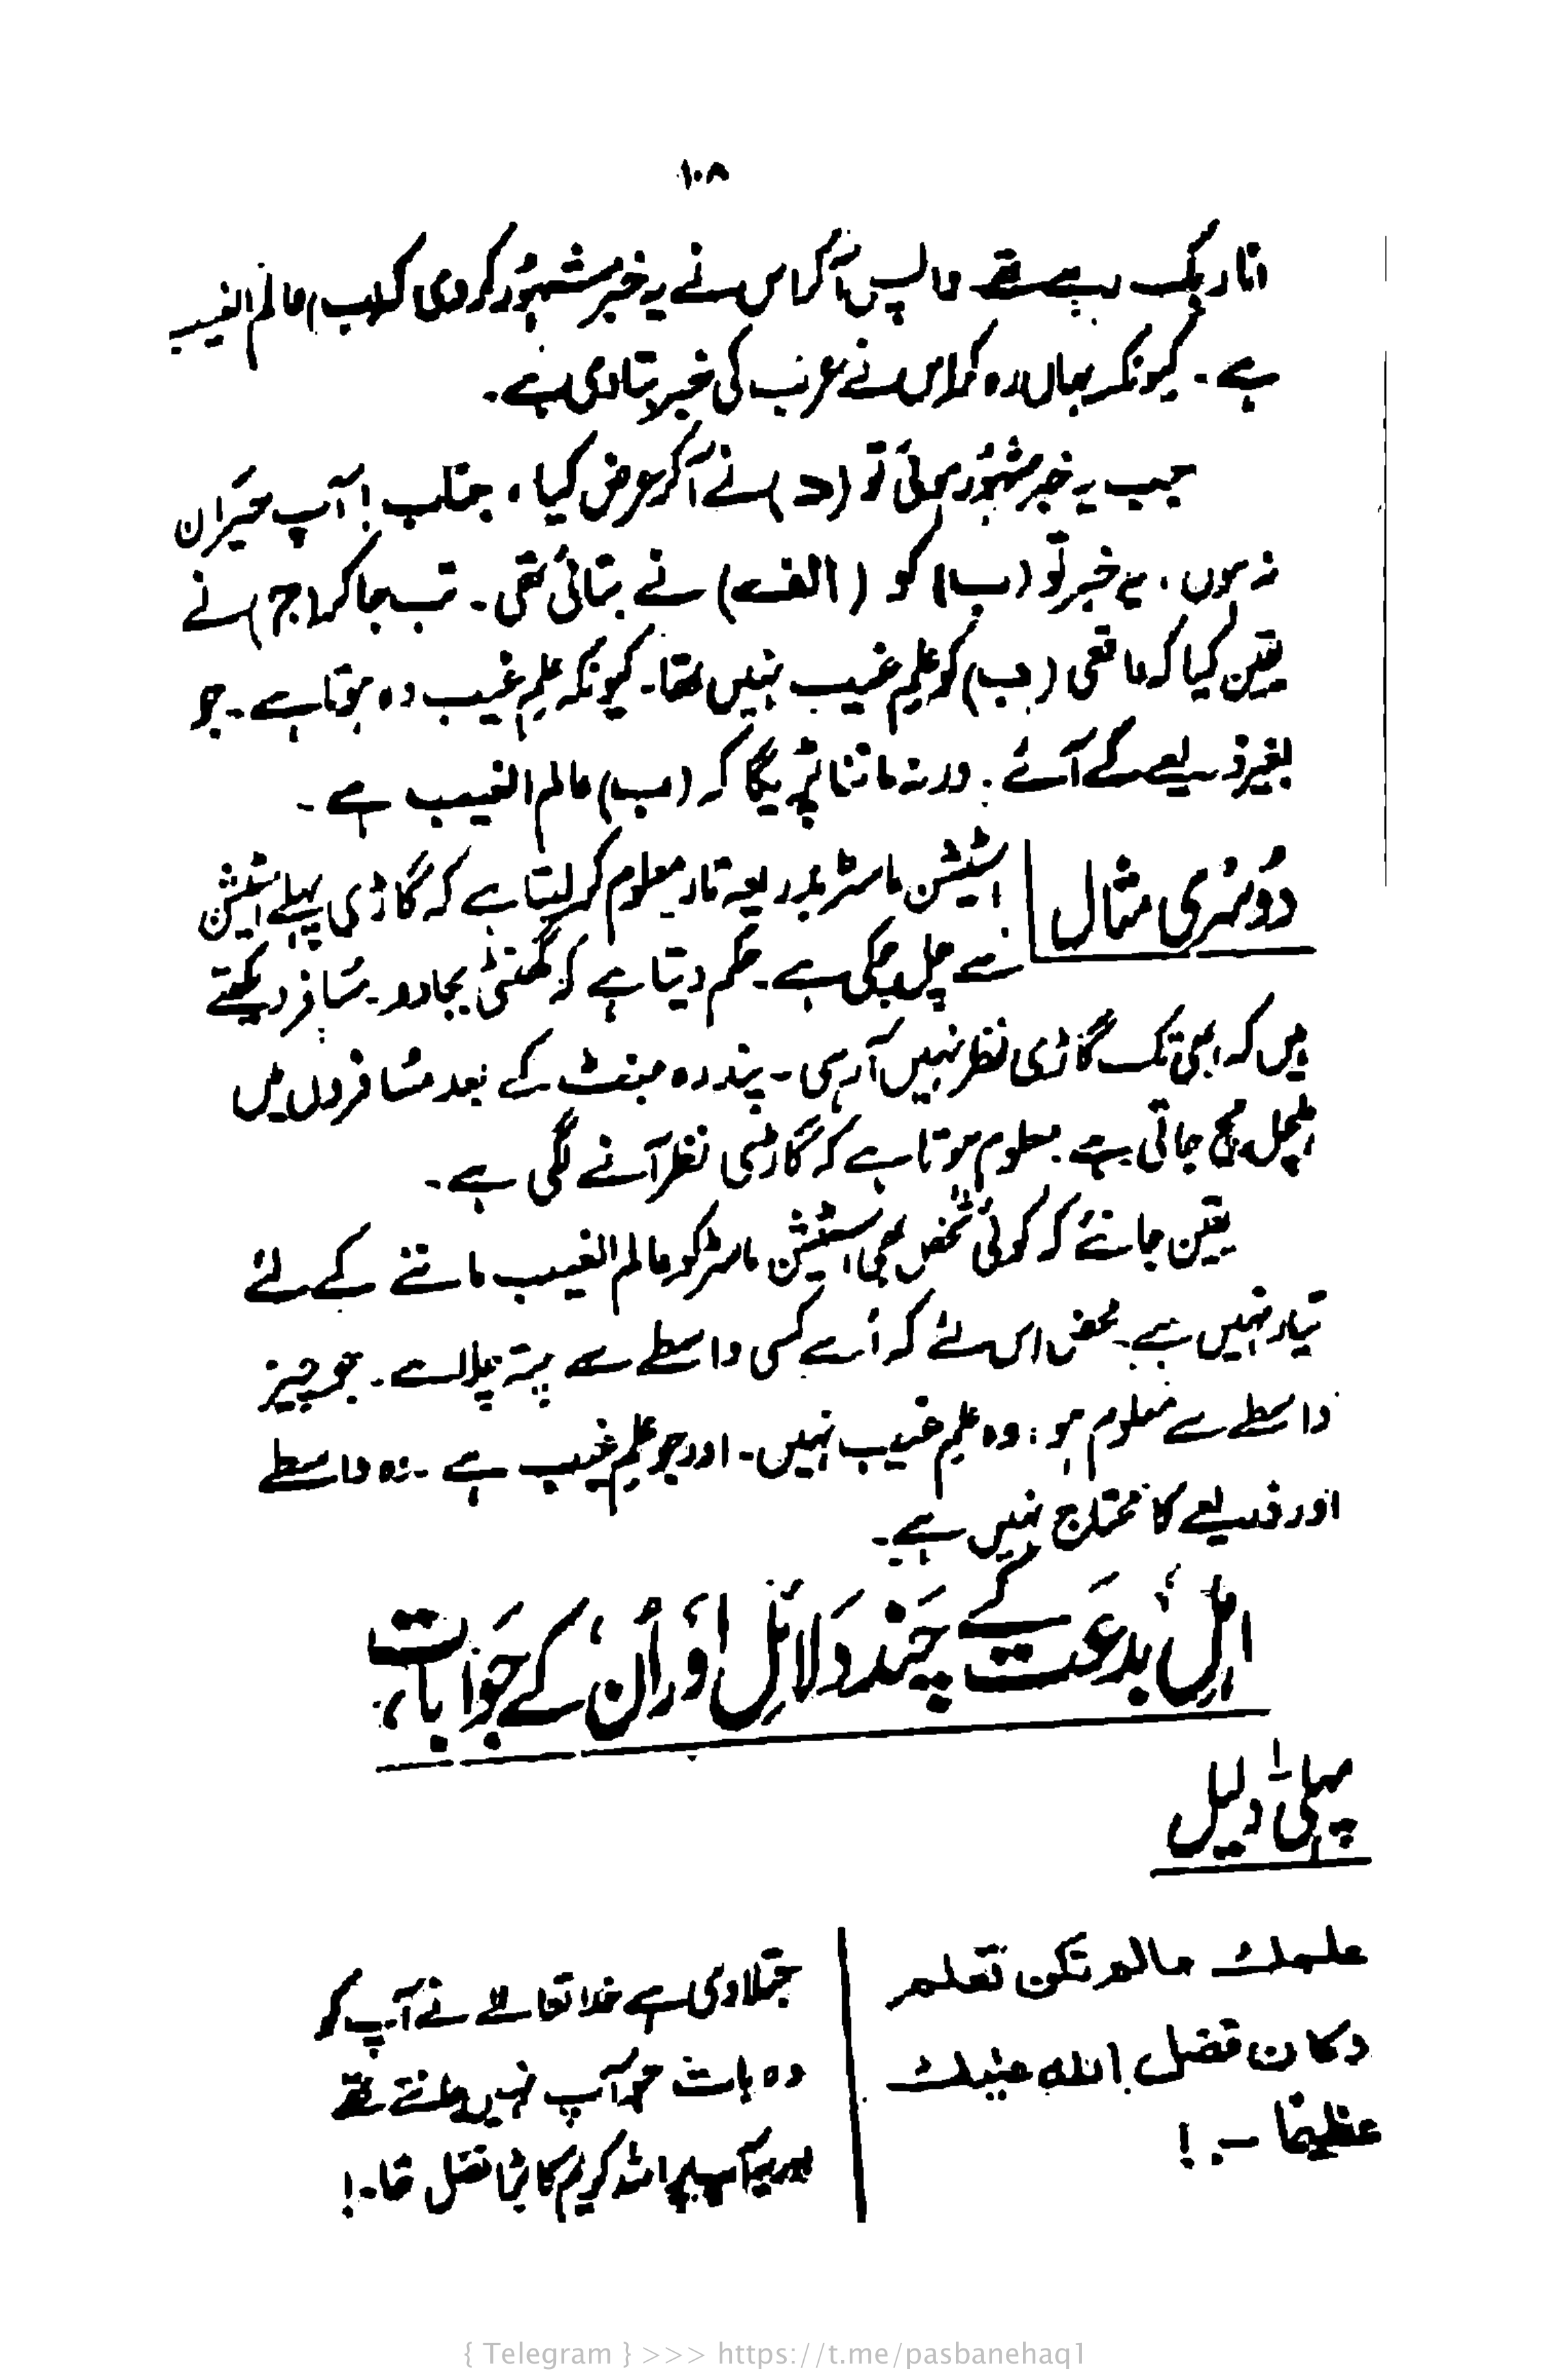 ۱۰۸
انار بک رہے تھے۔ واپس آکر اس نے یہ خبر مشہور کردی کہ (ب) عالم الغیب
ہے۔ کیونکہ یہاں رہ کر اس نے عرب کی خبر بتا دی ہے۔
جب یہ خبر مشہور ہوئی تو (د) نے آکر عرض کیا، جناب! آپ حیران
نہ ہوں، یہ خبر تو (ب) کو (الف) نے بتائی تھی۔ تب جاکر (ج) نے
یقین کیا کہ واقعی (ب) کو علم غیب نہیں تھا۔ کیونکہ علمِ غیب وہ ہوتا ہے۔ جو
بغیر ذریعے کے آئے۔ ورنہ ماننا پڑیگا کہ (ب) عالم الغیب ہے۔
دُوسری مثال
اسٹیشن ماسٹر بذریعہ تار معلوم کر لیتا ہے کہ گاڑی پہلے اسٹیشن
سے چل چکی ہے۔ حکم دیتا ہے کہ گھنٹی بجا دو۔ مسافر دیکھتے
ہیں کہ ابھی تک گاڑی نظر نہیں آرہی۔ پندرہ منٹ کے بعد مسافروں میں
ہلچل مچ جاتی ہے۔ معلوم ہوتا ہے کہ گاڑی نظر آنے لگی ہے۔
یقین جانئے کہ کوئی شخص بھی اسٹیشن ماسٹر کو عالم الغیب ماننے کے لئے
تیار نہیں ہے۔ محض اس لئے کہ اُسے کسی واسطے سے پتہ چلا ہے۔ جو چیز
واسطے سے معلوم ہو، وہ علمِ غیب نہیں۔ اور جو علمِ غیب ہے۔ وہ واسطے
اور ذریعے کا محتاج نہیں ہے۔
اہلِ بدعَت کے چَند دَلائل اَور اُن کے جَوابات
پہلی دلیل
علمك مالم تكن تعلم
وكان فضل الله عليك
عظيما ۔!
جتلا دی ہے خدا تعالےٰ نے آپ کو
وہ بات جو آپ نہیں جانتے تھے
اور آپ پر اللہ کریم کا بڑا فضل تھا۔!
{ Telegram } >>> https://t.me/pasbanehaq1